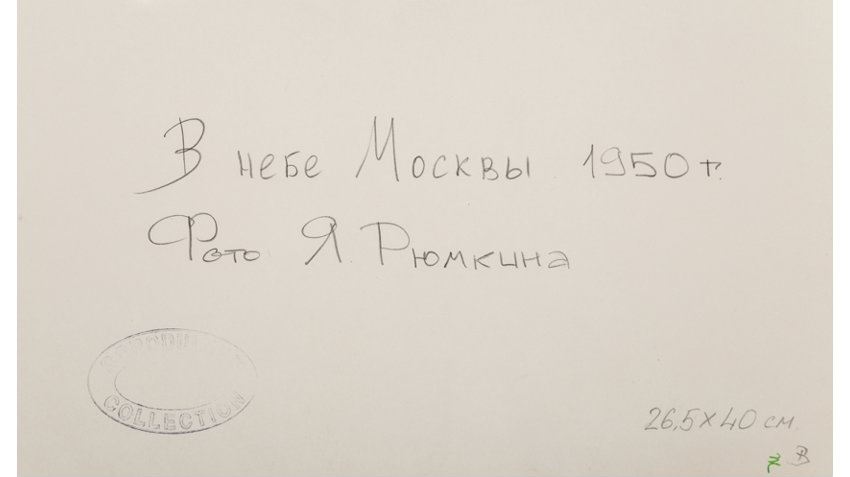 В небе Москвы 1950 г.
Фото Я. Рюмкина
COLLECTION
26,5 х 40 см.